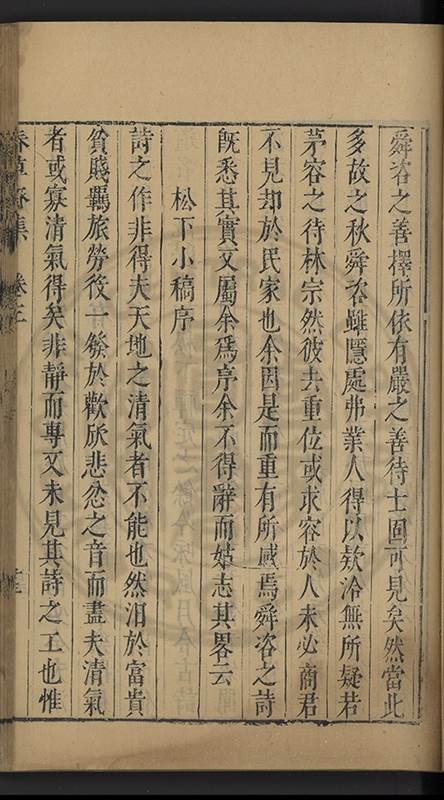 舜咨之善擇所依有嚴之善待士固可見矣然當此
多故之秋舜咨雖隱處弗業人得以欵洽無所疑若
茅容之待林宗然彼去重位或求容於人未必商君
不見却於民家也余因是而重有所感焉舜咨之詩
既悉其實又屬余爲序余不得辭而姑志其畧云
松下小稿序
詩之作非得夫天地之清氣者不能也然汨於富貴
貧賤羈旅勞役一發於歡欣悲忿之音而盡夫清氣
者或寡清氣得矣非靜而專又未見其詩之工也惟
春草齋集 卷之